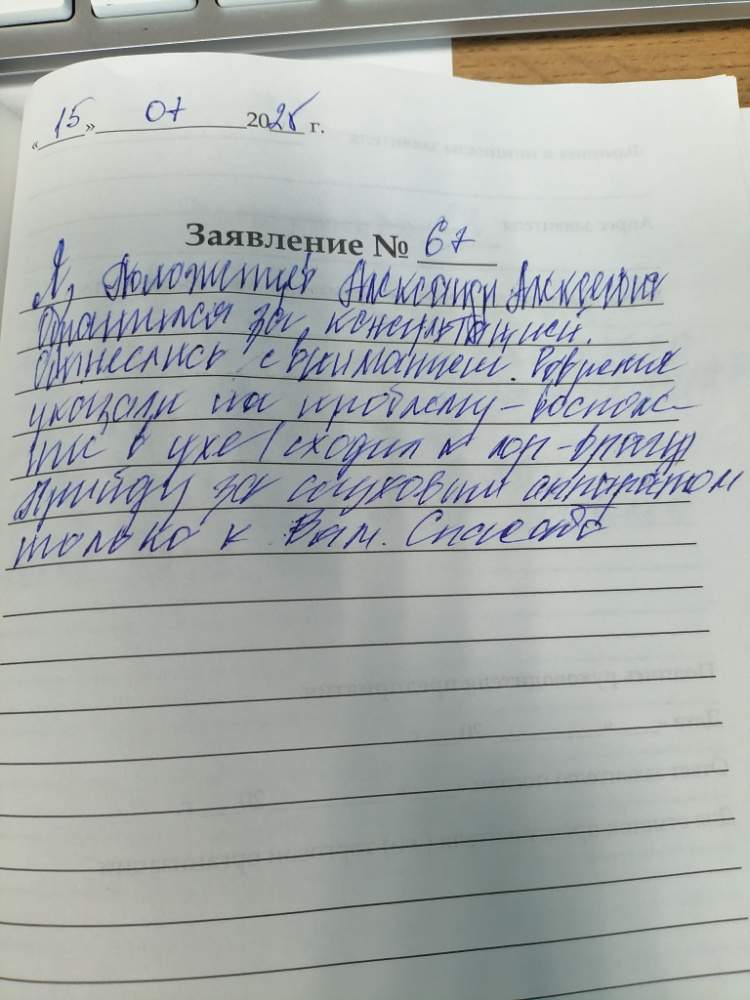 «15» 07 2025 г.
Заявление № 67
Я, Положенцев Александр Алексеевич
обратился за консультацией.
Отнеслись с вниманием. Вовремя
указали на проблему – воспале-
ние в ухе (сходил к лор-врачу)
Прийду за слуховым аппаратом
только к Вам. Спасибо